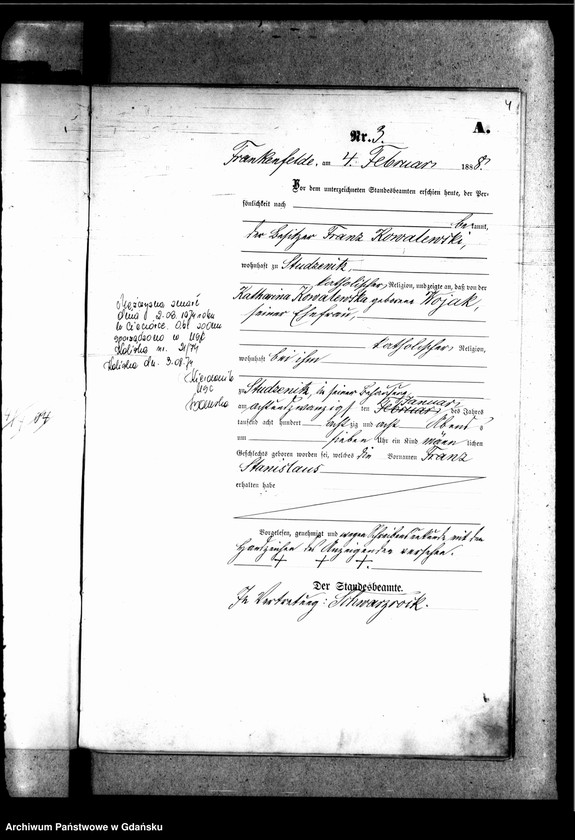 4
A.
Nr. 3.
Frankenfelde. am 4. Februar 1888.
Vor dem unterzeichneten Standesbeamten erschien heute, der Per-
sönlichkeit nach
bekannt,
der Besitzer Franz Kowalewski,
wohnhaft zu Studzenik,
katholischer Religion, und zeigte an, daß von der
Katharina Kowalewska geborene Wojak,
seiner Ehefrau,
katholischer Religion,
wohnhaft bei ihm
zu Studzenik, in seiner Behausung
Januar
am achtundzwanzigst ten Februar des Jahres
tausend acht hundert achtzig und acht Abend s
um sieben Uhr ein Kind männlichen
Geschlechts geboren worden sei, welches die Vornamen Franz
Stanislaus
erhalten habe
Vorgelesen, genehmigt und wegen Schreibensunkunde mit den
Handzeichen des Anzeigenden versehen.
+ + +.
Der Standesbeamte.
In Vertretung: Schwarzrock.
Mężczyzna zmarł
dnia 2.08.1974 roku
w Akt zgonu
sporządzono w USC
nr. 21/74
dn. 3.08.74
Kierownik
USC
Archiwum Państwowe w Gdańsku